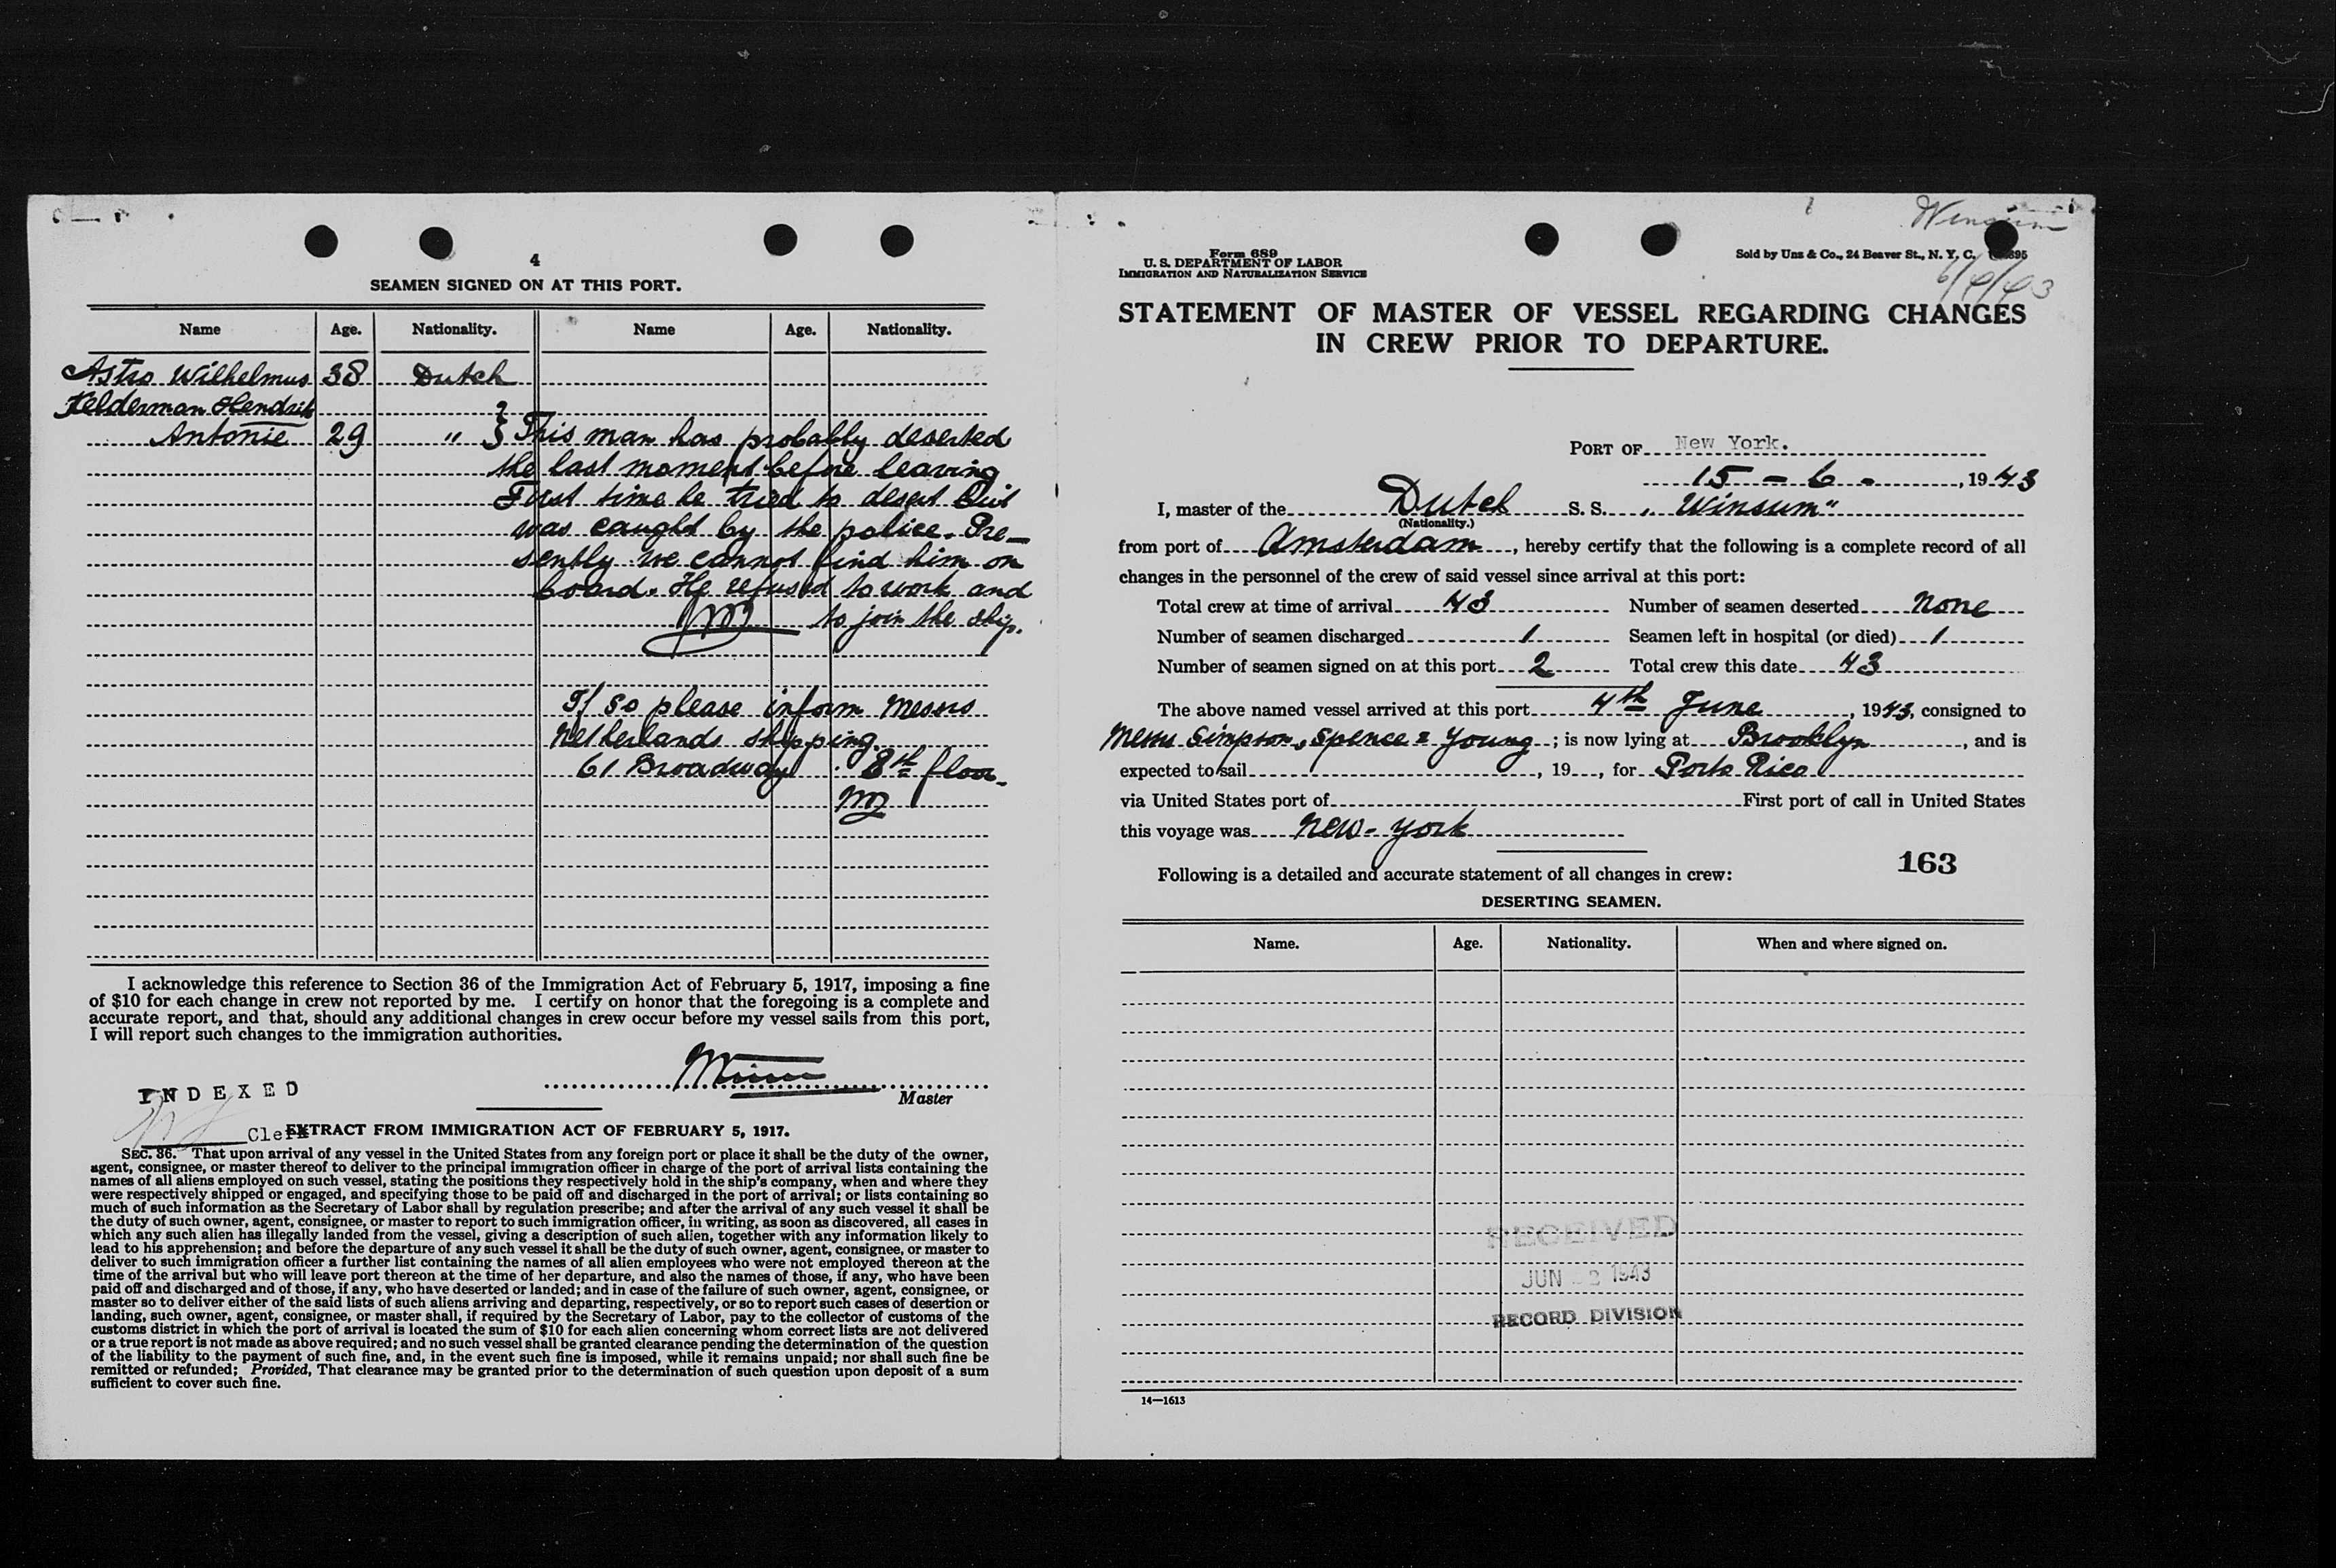 4
SEAMEN SIGNED ON AT THIS PORT.
Name Age. Nationality. Name Age. Nationality.
Astro Wilhelmus 38 Dutch
Kelderman Hendrik
Antonie 29 " } This man has probably deserted
the last moment before leaving
First time he tried to desert but
was caught by the police. Pre-
sently we cannot find him on
board. He refused to work and
to join the ship.
If so please inform Messrs
Netherlands shipping.
61 Broadway. 8th floor.
I acknowledge this reference to Section 36 of the Immigration Act of February 5, 1917, imposing a fine
of $10 for each change in crew not reported by me. I certify on honor that the foregoing is a complete and
accurate report, and that, should any additional changes in crew occur before my vessel sails from this port,
I will report such changes to the immigration authorities.
INDEXED
Master
Clerk
EXTRACT FROM IMMIGRATION ACT OF FEBRUARY 5, 1917.
SEC. 36. That upon arrival of any vessel in the United States from any foreign port or place it shall be the duty of the owner,
agent, consignee, or master thereof to deliver to the principal immigration officer in charge of the port of arrival lists containing the
names of all aliens employed on such vessel, stating the positions they respectively hold in the ship's company, when and where they
were respectively shipped or engaged, and specifying those to be paid off and discharged in the port of arrival; or lists containing so
much of such information as the Secretary of Labor shall by regulation prescribe; and after the arrival of any such vessel it shall be
the duty of such owner, agent, consignee, or master to report to such immigration officer, in writing, as soon as discovered, all cases in
which any such alien has illegally landed from the vessel, giving a description of such alien, together with any information likely to
lead to his apprehension; and before the departure of any such vessel it shall be the duty of such owner, agent, consignee, or master to
deliver to such immigration officer a further list containing the names of all alien employees who were not employed thereon at the
time of the arrival but who will leave port thereon at the time of her departure, and also the names of those, if any, who have been
paid off and discharged and of those, if any, who have deserted or landed; and in case of the failure of such owner, agent, consignee, or
master so to deliver either of the said lists of such aliens arriving and departing, respectively, or so to report such cases of desertion or
landing, such owner, agent, consignee, or master shall, if required by the Secretary of Labor, pay to the collector of customs of the
customs district in which the port of arrival is located the sum of $10 for each alien concerning whom correct lists are not delivered
or a true report is not made as above required; and no such vessel shall be granted clearance pending the determination of the question
of the liability to the payment of such fine, and, in the event such fine is imposed, while it remains unpaid; nor shall such fine be
remitted or refunded; Provided, That clearance may be granted prior to the determination of such question upon deposit of a sum
sufficient to cover such fine.
Winsum
Form 689
U. S. DEPARTMENT OF LABOR
IMMIGRATION AND NATURALIZATION SERVICE
Sold by Unz & Co., 24 Beaver St., N. Y. C.
6/4/43
STATEMENT OF MASTER OF VESSEL REGARDING CHANGES
IN CREW PRIOR TO DEPARTURE.
PORT OF New York.
15 - 6 - , 1943
I, master of the Dutch S. S. "Winsum"
(Nationality.)
from port of Amsterdam, hereby certify that the following is a complete record of all
changes in the personnel of the crew of said vessel since arrival at this port:
Total crew at time of arrival 43 Number of seamen deserted none
Number of seamen discharged 1 Seamen left in hospital (or died) 1
Number of seamen signed on at this port 2 Total crew this date 43
The above named vessel arrived at this port 4th June, 1943, consigned to
Messrs Simpson, Spence & Young; is now lying at Brooklyn, and is
expected to sail , 19 , for Porto Rico
via United States port of First port of call in United States
this voyage was New-York
163
Following is a detailed and accurate statement of all changes in crew:
DESERTING SEAMEN.
Name. Age. Nationality. When and where signed on.
RECEIVED
JUN 2 1943
RECORD DIVISION
14—1613